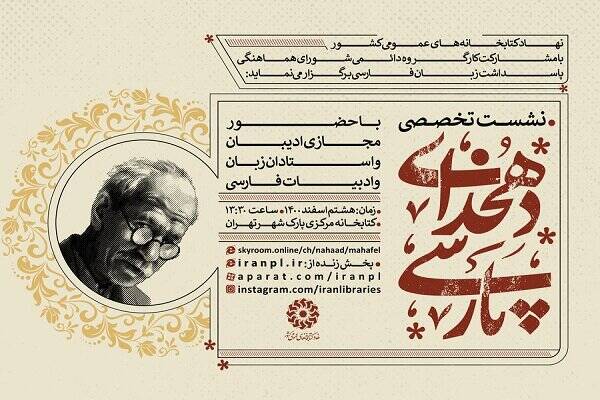 نهاد کتابخانه‌های عمومی کشور
با مشارکت کارگروه دائمی شورای هماهنگی
پاسداشت زبان فارسی برگزار می‌نماید:
نشست تخصصی
دهخدای
پارسی
با حضور
مجازی ادیبان
و استادان زبان
و ادبیات فارسی
زمان: هشتم اسفند ۱۴۰۰ • ساعت ۱۳:۳۰
کتابخانه مرکزی پارک شهر تهران
skyroom.online/ch/nahaad/mahafel
پخش زنده از: iranpl.ir
aparat.com/iranpl
instagram.com/iranlibraries
نهاد کتابخانه‌های عمومی کشور